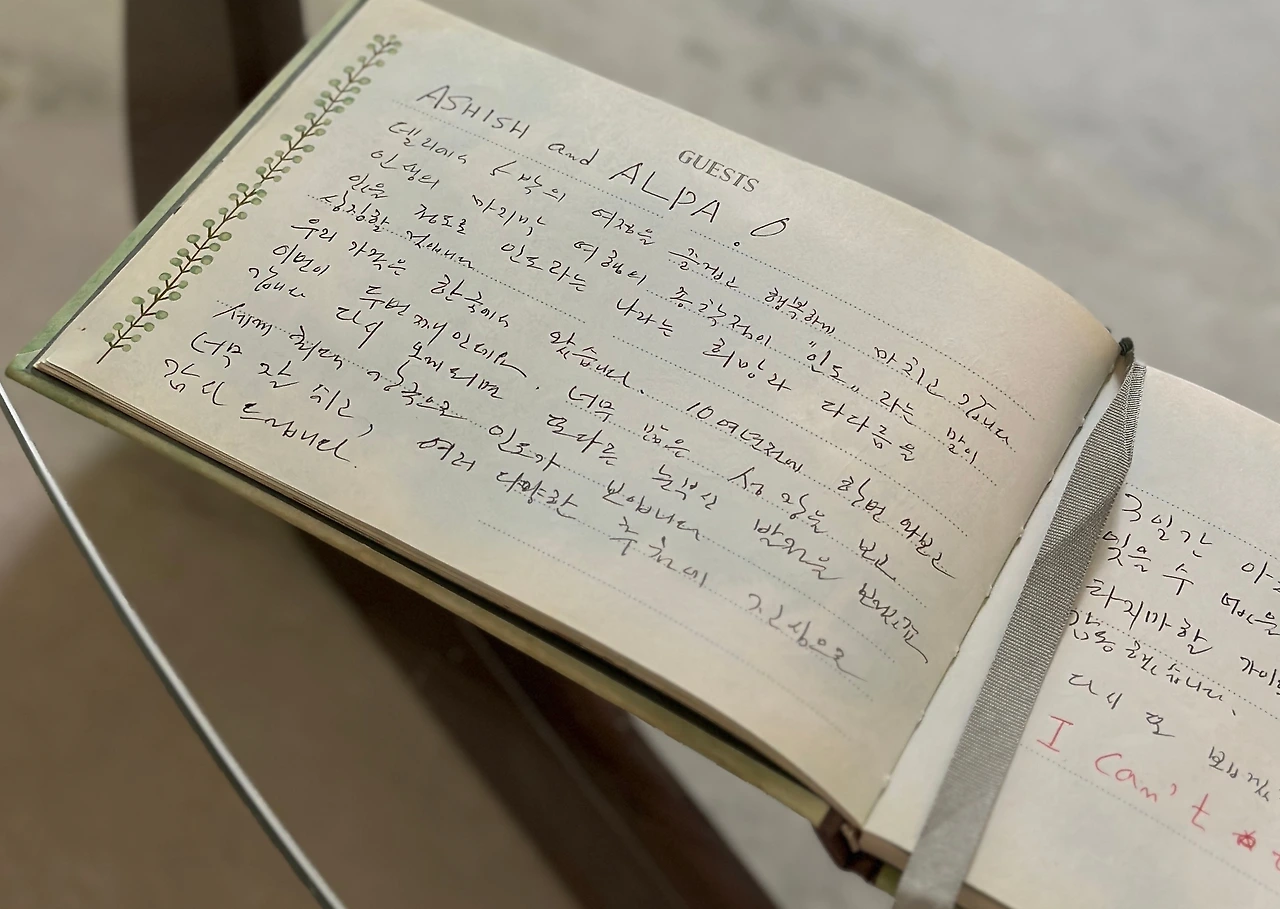 GUESTS
ASHISH and ALPA
델리에서 5박의 여정을 즐겁고 행복하게 마치고 갑니다
인생의 마지막 여행의 종착점이 "인도" 라는 말이
있을 정도로 인도라는 나라는 희망과 다다름을
상징할 것입니다
우리 가족은 한국에서 왔습니다. 10여년전에 한번 와보고
이번이 두번째인데요. 너무 많은 성장을 보고
갑니다 다시 오게되면 또다른 눈부신 발전을
세계 최대 강국으로 인도가 보입니다
너무 잘 쉬고, 여러 다양한 추천에 진심으로
감사 드립니다.
3일간
잊을 수
감동했습니다.
다시 또
I can't